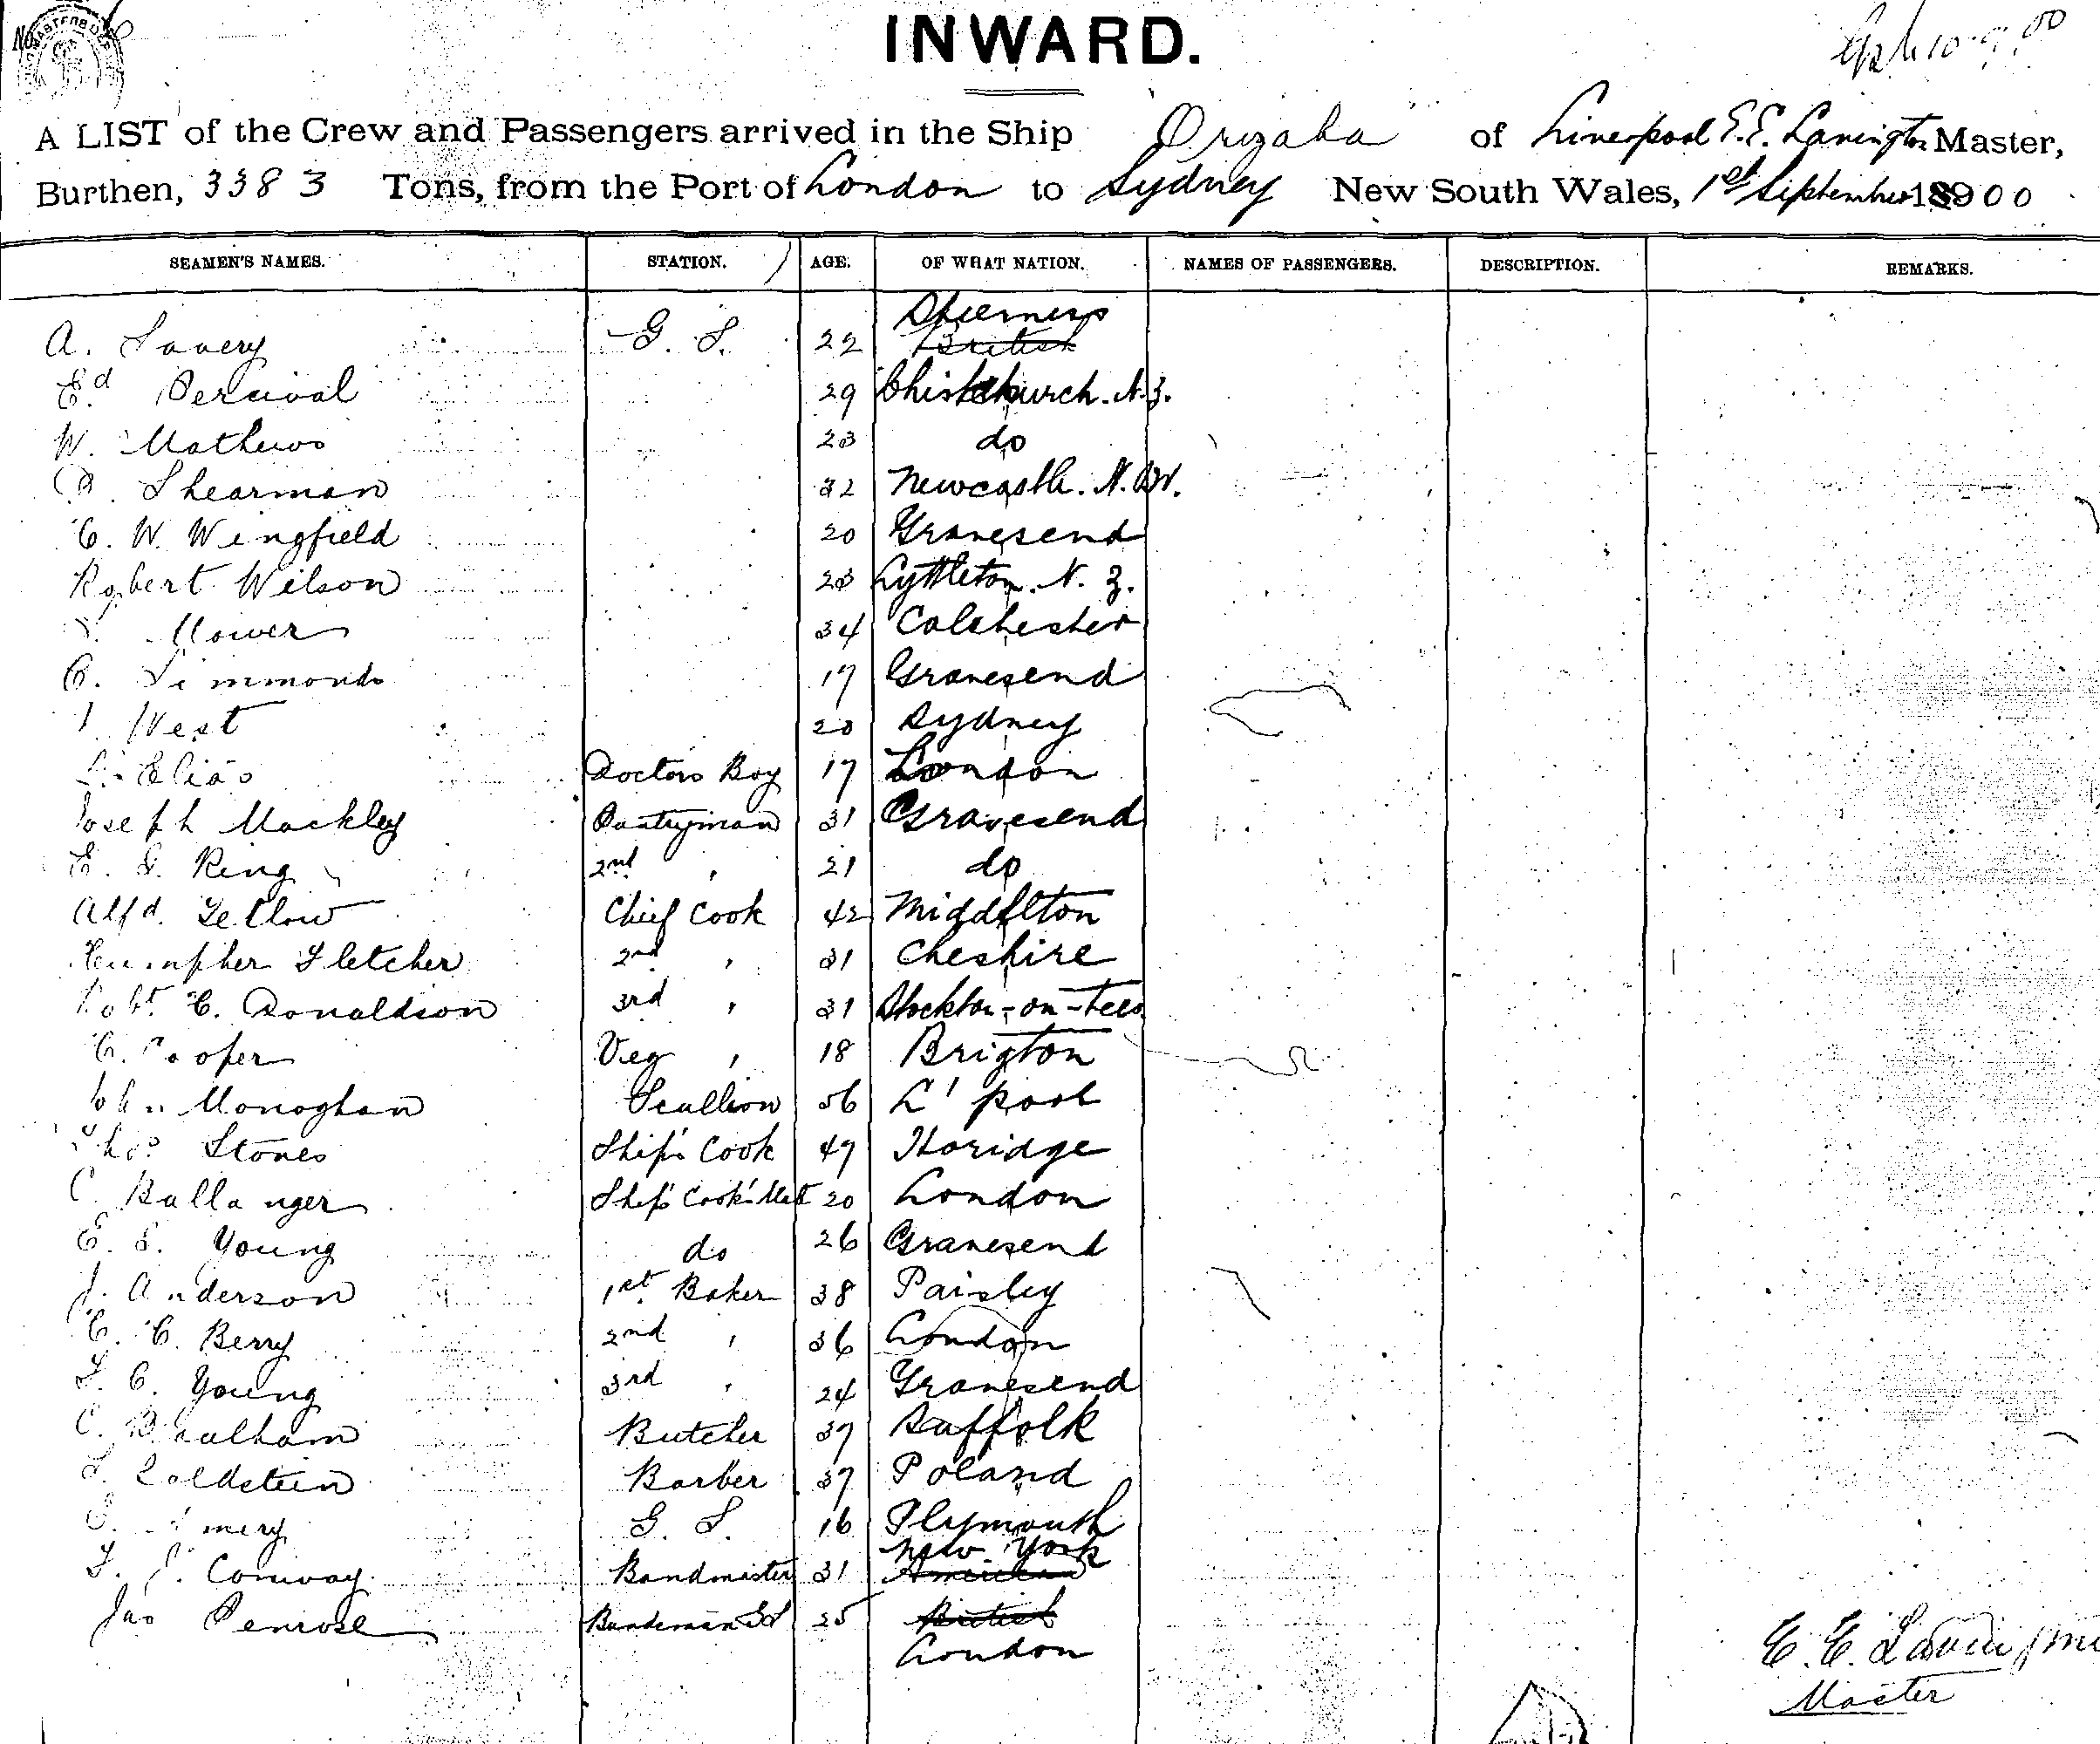 INWARD.
A LIST of the Crew and Passengers arrived in the Ship Orizaba of Liverpool E. E. Lavington Master,
Burthen, 3383 Tons, from the Port of London to Sydney New South Wales, 1st September 1900
SEAMEN'S NAMES. STATION. AGE. OF WHAT NATION. NAMES OF PASSENGERS. DESCRIPTION. REMARKS.
A. Savery G. S. 22 British
Ed Percival 29 Christchurch. N.Z.
W. Mathews 23 do
Shearman 32 Newcastle. N.S.W.
C. W. Wingfield 20 Gravesend
Robert Wilson 23 Lyttleton. N. Z.
Mower 34 Colchester
C. Simmonds 17 Gravesend
West 20 Sydney
Elias Doctors Boy 17 London
Joseph Mackley Pantryman 31 Gravesend
E. S. Ring 2nd " 21 do
Alfd. Tetlow Chief Cook 42 Middelton
Fletcher 2nd " 31 Cheshire
Robt. C. Donaldson 3rd " 31 Stockton-on-Tees
C. Cooper Veg " 18 Brigton
John Monoghan Scullion 56 L'pool
Thos Stones Ship's Cook 47 Horidge
C. Ballanger Ship's Cook's Mate 20 London
E. S. Young do 26 Gravesend
J. Anderson 1st Baker 38 Paisley
C. C. Berry 2nd " 36 London
F. C. Young 3rd " 24 Gravesend
C. Butcher 37 Suffolk
Goldstein Barber 37 Poland
G. S. 16 Plymouth
New York
F. J. Conway Bandmaster 31 American
Jas Penrose Bandsman 25 British
London
E. E. Lavington
Master